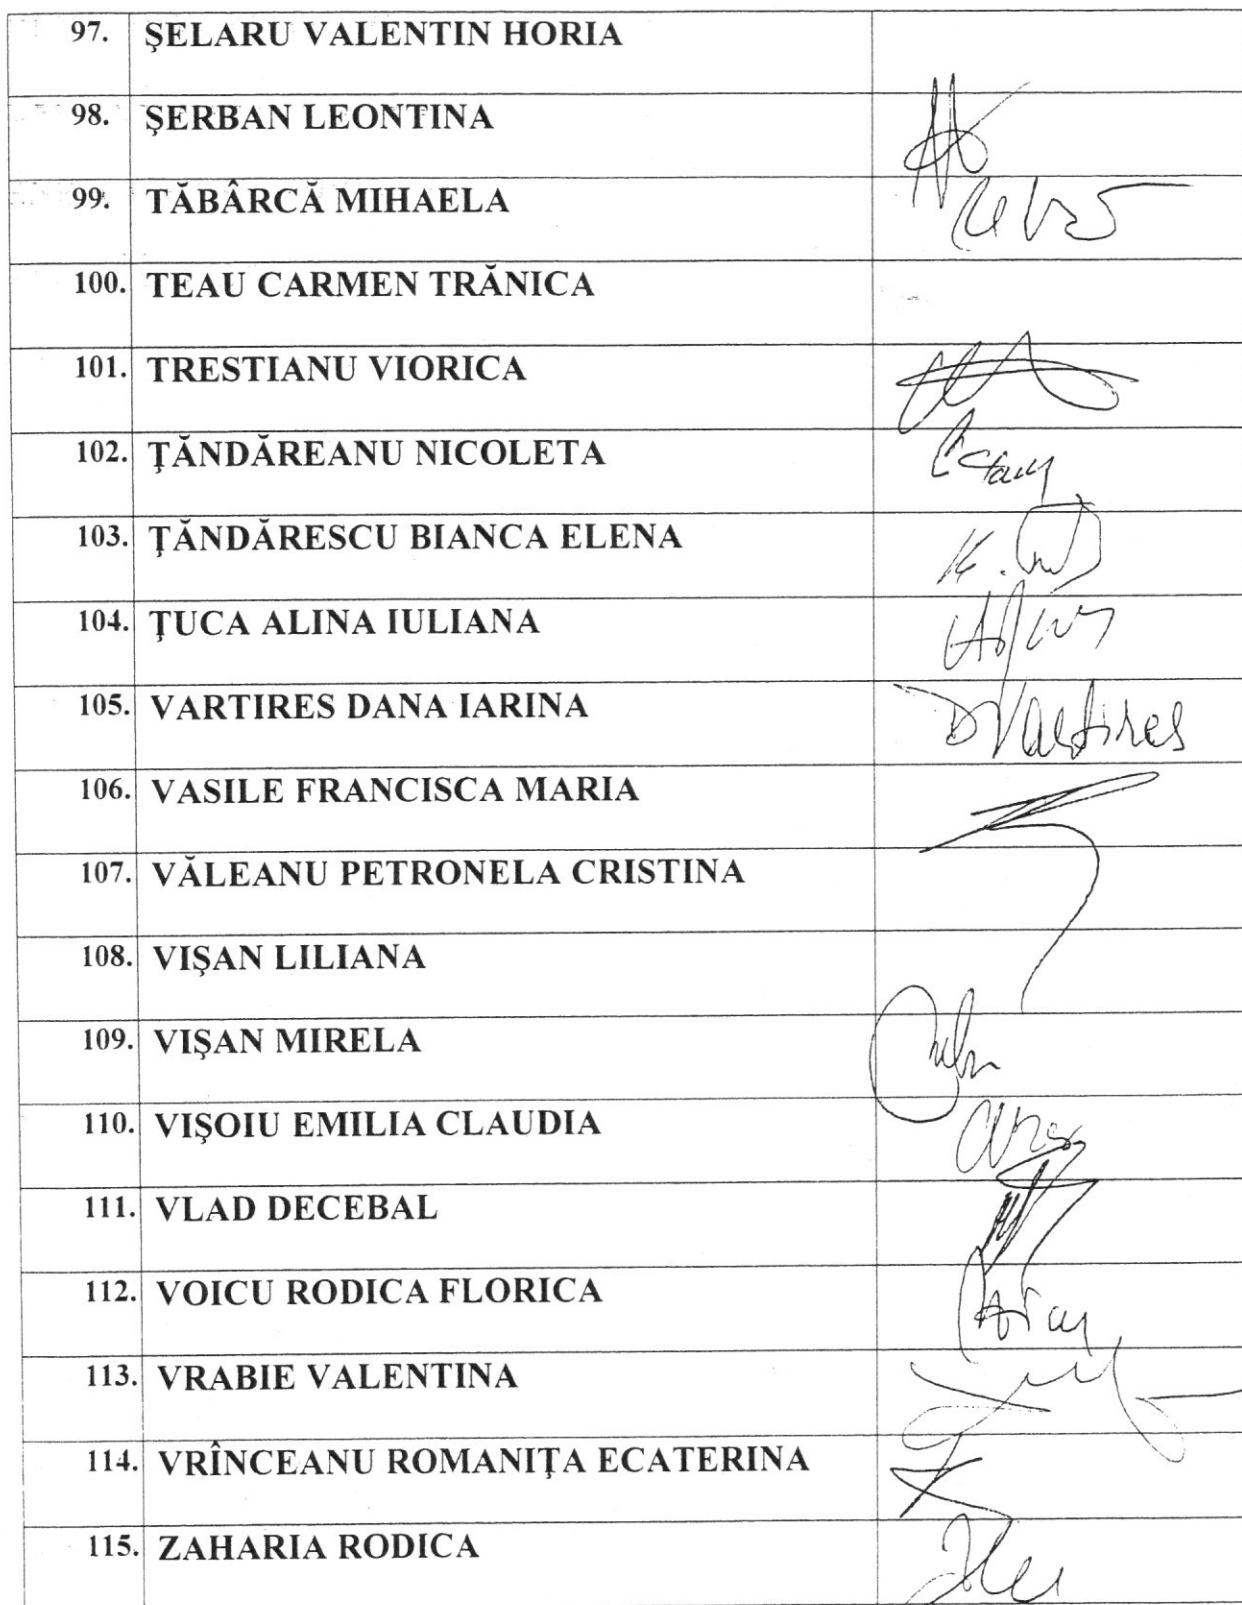 97. ŞELARU VALENTIN HORIA
98. ŞERBAN LEONTINA
99. TĂBÂRCĂ MIHAELA
100. TEAU CARMEN TRĂNICA
101. TRESTIANU VIORICA
102. ŢĂNDĂREANU NICOLETA
103. ŢĂNDĂRESCU BIANCA ELENA
104. ŢUCA ALINA IULIANA
105. VARTIRES DANA IARINA DVartires
106. VASILE FRANCISCA MARIA
107. VĂLEANU PETRONELA CRISTINA
108. VIŞAN LILIANA
109. VIŞAN MIRELA
110. VIŞOIU EMILIA CLAUDIA
111. VLAD DECEBAL
112. VOICU RODICA FLORICA
113. VRABIE VALENTINA
114. VRÎNCEANU ROMANIŢA ECATERINA
115. ZAHARIA RODICA